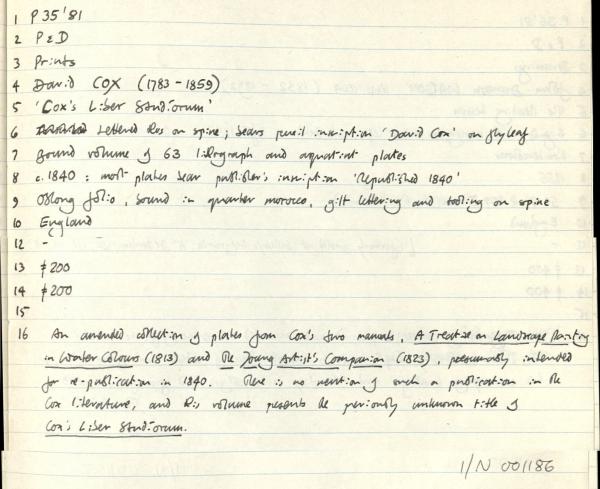 1 P 35'81
2 P & D
3 Prints
4 David COX (1783-1859)
5 'Cox's Liber Studiorum'
6 Lettered thus on spine; bears pencil inscription 'David Cox' on flyleaf
7 Bound volume of 63 lithograph and aquatint plates
8 c. 1840 : most plates bear publisher's inscription 'Republished 1840'
9 Oblong folio, bound in quarter morocco, gilt lettering and tooling on spine
10 England
12 -
13 $200
14 $200
15
16 An amended collection of plates from Cox's two manuals, A Treatise on Landscape Painting
in Water Colours (1813) and The Young Artist's Companion (1823), presumably intended
for re-publication in 1840. There is no mention of such a publication in the
Cox literature, and this volume presents the previously unknown title of
Cox's Liber Studiorum.
1/N 001186